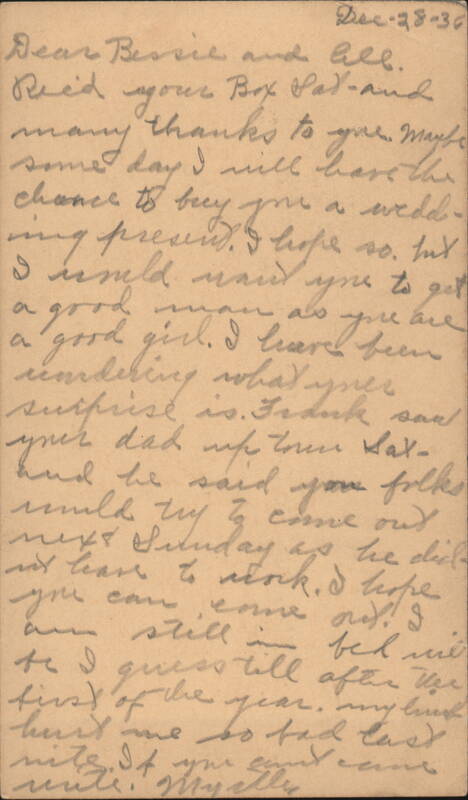 Dec-28-36
Dear Bessie and All.
Rec'd your Box Sat- and
many thanks to you. Maybe
some day I will have the
chance to buy you a wedd-
ing present. I hope so. but
I would want you to get
a good man as you are
a good girl. I have been
wondering what your
surprise is. Frank saw
your dad up town Sat-
and he said you folks
would try to come out
next Sunday as he did-
nt have to work. I hope
you can come out. I
am still in bed will
be I guess till after the
first of the year. my
hurt me so bad last
nite. If you cant come
write.